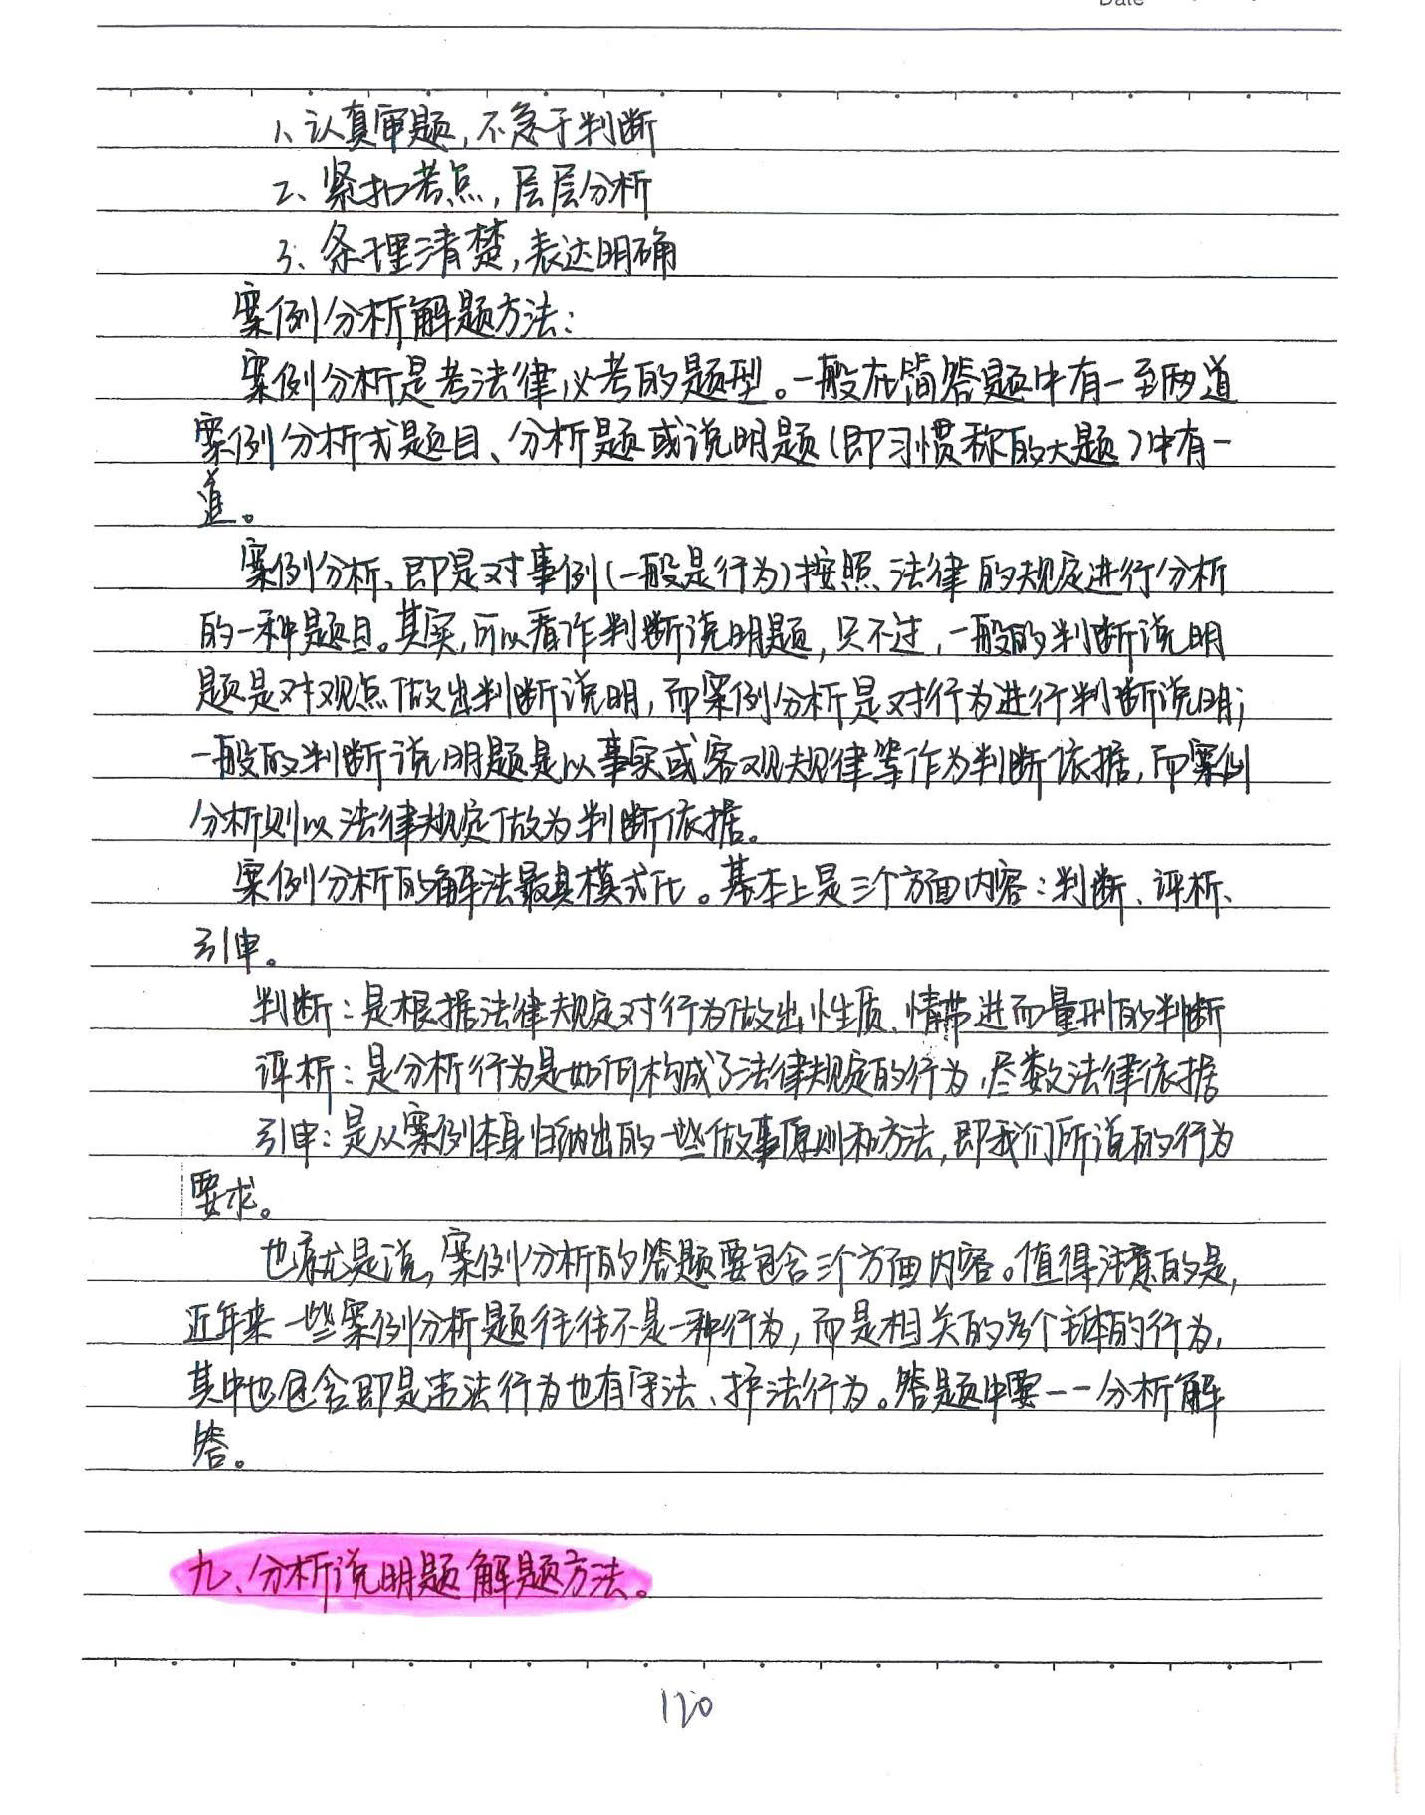 Date
1、认真审题,不急于判断
2、紧扣考点,层层分析
3、条理清楚,表达明确
案例分析解题方法:
案例分析是考法律必考的题型。一般在简答题中有一至两道
案例分析式题目、分析题或说明题(即习惯称的大题)中有一
道。
案例分析,即是对事例(一般是行为)按照法律的规定进行分析
的一种题目。其实,可以看作判断说明题,只不过,一般的判断说明
题是对观点做出判断说明,而案例分析是对行为进行判断说明;
一般的判断说明题是以事实或客观规律等作为判断依据,而案例
分析则以法律规定做为判断依据。
案例分析的解法最具模式化。基本上是三个方面内容:判断、评析、
引申。
判断:是根据法律规定对行为做出性质、情节进而量刑的判断
评析:是分析行为是如何构成了法律规定的行为,尽数法律依据
引申:是从案例本身归纳出的一些做事原则和方法,即我们所说的行为
要求。
也就是说,案例分析的答题要包含三个方面内容。值得注意的是,
近年来一些案例分析题往往不是一种行为,而是相关的多个主体的行为,
其中也包含即是违法行为也有守法、护法行为。答题中要一一分析解
答。
九、分析说明题解题方法。
120